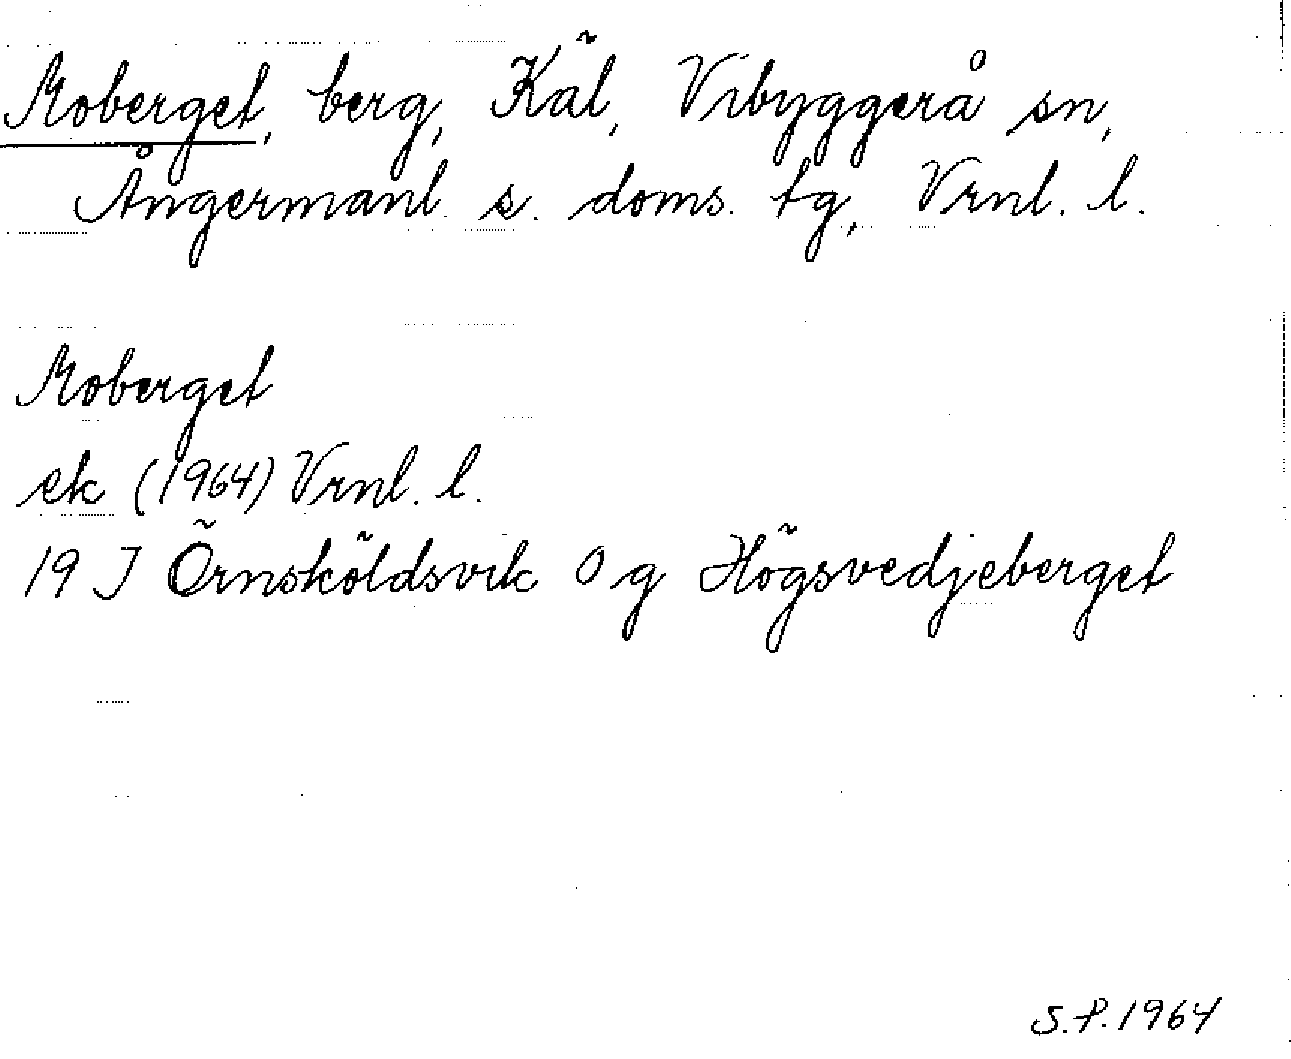 Moberget, berg, Käl, Vibyggerå sn,
Ångermanl. s. doms. tg, Vrnl. l.
Moberget
ek (1964) Vrnl. l.
19 J Örnsköldsvik 0 g Högsvedjeberget
S.P. 1964